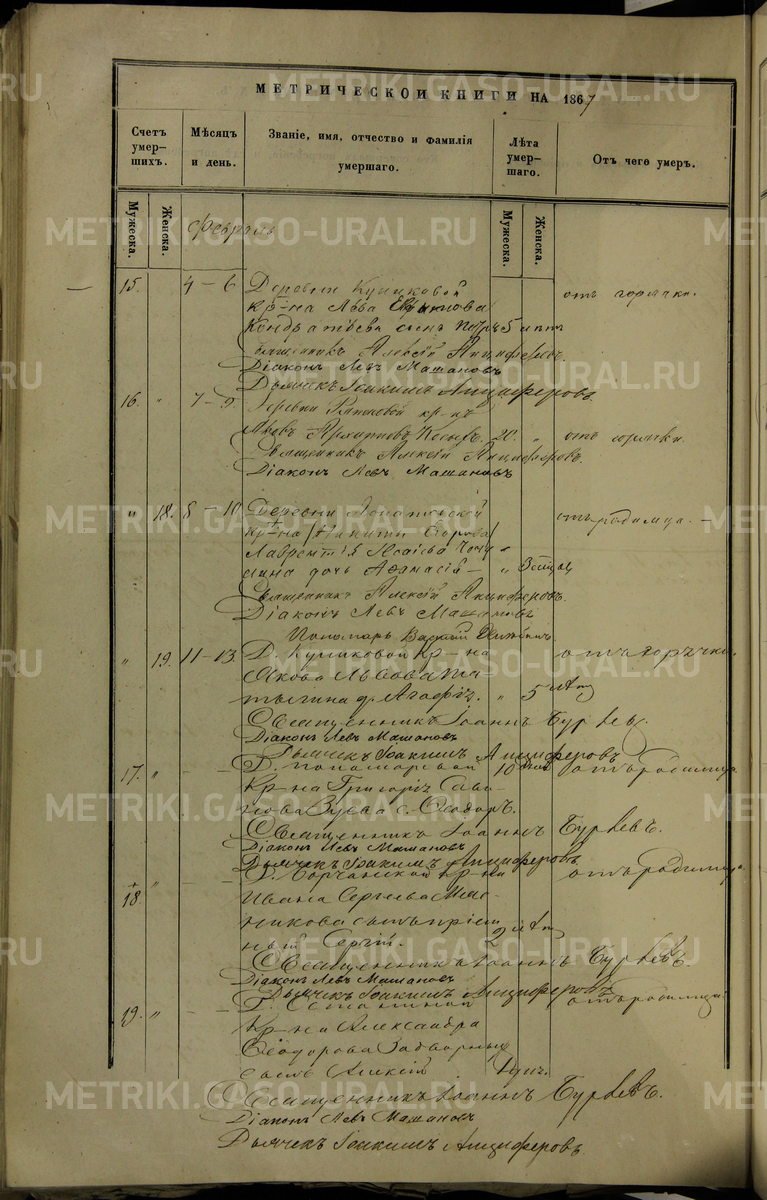 МЕТРИЧЕСКОЙ КНИГИ НА 1867
Счетъ умершихъ.
Мѣсяцъ и день.
Званіе, имя, отчество и фамилія умершаго.
Лѣта умершаго.
Отъ чего умеръ.
Мужеска.
Женска.
Мужеска.
Женска.
Февраль
15. 4 – 6 Деревни Куликовой отъ горячки.
кр–на Льва
Кондратьева сынъ Петръ 5 лѣтъ
Священникъ Алексій Анциферовъ.
Діаконъ Левъ Машановъ
Дьячекъ Іоакимъ Анциферовъ.
16. „ 7 – 9. Деревни кр–нъ
Яковъ Архиповъ 20. „ отъ горячки.
Священникъ Алексій Анциферовъ.
Діаконъ Левъ Машановъ
„ 18. 8 – 10 Деревни отъ родимца. –
кр–на Никиты Егорова
Лаврентія Исаева
дочь Афанасія – „
Священникъ Алексій Анциферовъ.
Діаконъ Левъ Машановъ
Пономарь Василій
„ 19. 11 – 13. Д. Куликовой кр–на отъ горячки.
Якова Львова
д. Агафія. „ 5 лѣтъ
Священникъ Іоаннъ Бурлевъ.
Діаконъ Левъ Машановъ
Дьячекъ Іоакимъ Анциферовъ
17. „ Д. Пономаревой 10 отъ родимца.
кр–на Григорія Савинова Зуева с. Ѳеодоръ.
Священникъ Іоаннъ Бурлевъ.
Діаконъ Левъ Машановъ
Дьячекъ Іоакимъ Анциферовъ
18. „ Д. кр–на отъ родимца.
Ивана Сергѣева Мясникова сынъ пріемный Сергій. 2 лѣт
Священникъ Іоаннъ Бурлевъ
Діаконъ Левъ Машановъ
Дьячекъ Іоакимъ Анциферовъ
19. „ Д. Останиной отъ родимца.
кр–на Александра
Ѳеодорова
сынъ Алексій
Священникъ Іоаннъ Бурлевъ.
Діаконъ Левъ Машановъ
Дьячекъ Іоакимъ Анциферовъ.
METRIKI.GASO-URAL.RU